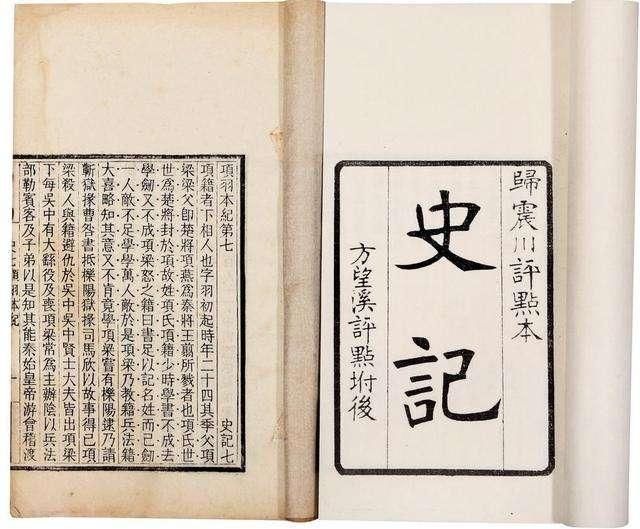 歸震川評點本
史記
方望溪評點坿後
項羽本紀第七 史記七
項籍者下相人也字羽初起時年二十四其季父項
梁梁父即楚將項燕爲秦將王翦所戮者也項氏世
世爲楚將封於項故姓項氏項籍少時學書不成去
學劍又不成項梁怒之籍曰書足以記名姓而已劍
一人敵不足學學萬人敵於是項梁乃教籍兵法籍
大喜略知其意又不肯竟學項梁嘗有櫟陽逮乃請
蘄獄掾曹咎書抵櫟陽獄掾司馬欣以故事得已項
梁殺人與籍避仇於吳中吳中賢士大夫皆出項梁
下每吳中有大繇役及喪項梁常爲主辦陰以兵法
部勒賓客及子弟以是知其能秦始皇帝游會稽渡